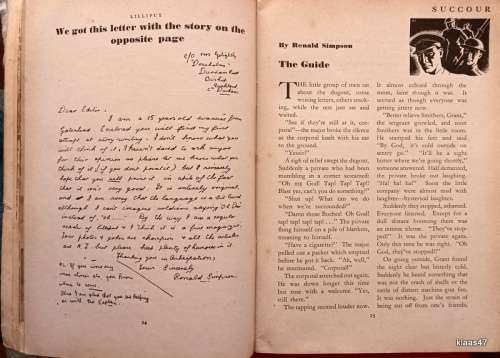 LILLIPUT
We got this letter with the story on the
opposite page
c/o
Dear Editor.
I am a 15 years old evacuee from
Gateshead. Enclosed you will find my first
attempt at story writing. I don't know what you
will think of it, I haven't dared to ask anyone
for their opinion so please let me know what you
think of it (if you don't publish), but I earnestly
hope that you will publish in spite of the fact
that it isn't very good. It is entirely original,
and I am sorry that the language is a bit
although I can't imagine soldiers saying "Oh Dear"
instead of "oh By the way I am a regular
reader of Lilliput & I think it is a first magazine.
your photos & jokes are champion & all the articles
are A.1. but please have plenty of humour in it.
Thanking you in Anticipation,
Yours Sincerely
Ronald Simpson.
24
SUCCOUR
By Ronald Simpson
The Guide
THE little group of men sat
about the dugout, some
writing letters, others smok-
ing, while the rest just sat and
waited.
"See if they're still at it, cor-
poral"—the major broke the silence
as the corporal knelt with his ear
to the ground.
"Yessir!"
A sigh of relief swept the dugout.
Suddenly a private who had been
mumbling in a corner screamed:
"Oh my God! Tap! Tap! Tap!
Blast yer, can't you do something?"
"Shut up! What can we do
when we're surrounded?"
"Damn those Boches! Oh God!
tap! tap! tap! . . ." The private
flung himself on a pile of blankets,
moaning to himself.
"Have a cigarette?" The major
pulled out a packet which crumpled
before he got it back. "Ah, well,"
he murmured. "Corporal!"
The corporal stretched out again.
He was down longer this time
but rose with a welcome "Yes,
still there."
The tapping seemed louder now.
It almost echoed through the
room, faint though it was. It
seemed as though everyone was
getting jittery now.
"Better relieve Smithers, Grant,"
the sergeant growled, and soon
Smithers was in the little room.
He stamped his feet and said
"By God, it's cold outside on
sentry go." "It'll be a sight
hotter where we're going shortly,"
someone answered. Half demented,
the private broke out laughing.
"Ha! ha! ha!" Soon the little
company were almost mad with
laughter—hysterical laughter.
Suddenly, it stopped, abashed.
Everyone listened. Except for a
dull distant booming there was
an intense silence. "They've stop-
ped!" It was the private again.
Only this time he was right. "Oh
God, they've stopped!"
On going outside, Grant found
the night clear but bitterly cold.
Suddenly he heard something that
was not the crash of shells or the
rattle of distant machine gun fire.
It was nothing. Just the strain of
being cut off from one's friends,
25
klaas47